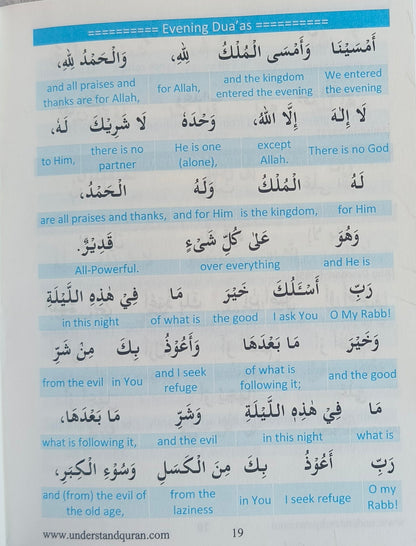 ========== Evening Dua'as ==========
أَمْسَيْنَا وَأَمْسَى الْمُلْكُ لِلّٰهِ، وَالْحَمْدُ لِلّٰهِ،
We entered the evening | and the kingdom entered the evening | for Allah, | and all praises and thanks are for Allah,
لَا إِلٰهَ إِلَّا اللهُ، وَحْدَهُ لَا شَرِيْكَ لَهُ،
There is no God | except Allah. | He is one (alone), | there is no partner | to Him,
لَهُ الْمُلْكُ وَلَهُ الْحَمْدُ،
for Him | is the kingdom, | and for Him | are all praises and thanks,
وَهُوَ عَلىٰ كُلِّ شَیْءٍ قَدِيْرٌ.
and He is | over everything | All-Powerful.
رَبِّ أَسْـَٔلُكَ خَيْرَ مَا فِيْ هٰذِهِ اللَّيْلَةِ
O My Rabb! | I ask You | the good | of what is | in this night
وَخَيْرَ مَا بَعْدَهَا وَأَعُوْذُ بِكَ مِنْ شَرِّ
and the good | of what is following it; | and I seek refuge | in You | from the evil
مَا فِيْ هٰذِهِ اللَّيْلَةِ وَشَرِّ مَا بَعْدَهَا،
what is | in this night | and the evil | what is following it,
رَبِّ أَعُوْذُ بِكَ مِنَ الْكَسَلِ وَسُوْءِ الْكِبَرِ،
O my Rabb! | I seek refuge | in You | from the laziness | and (from) the evil of the old age,
www.understandquran.com 19